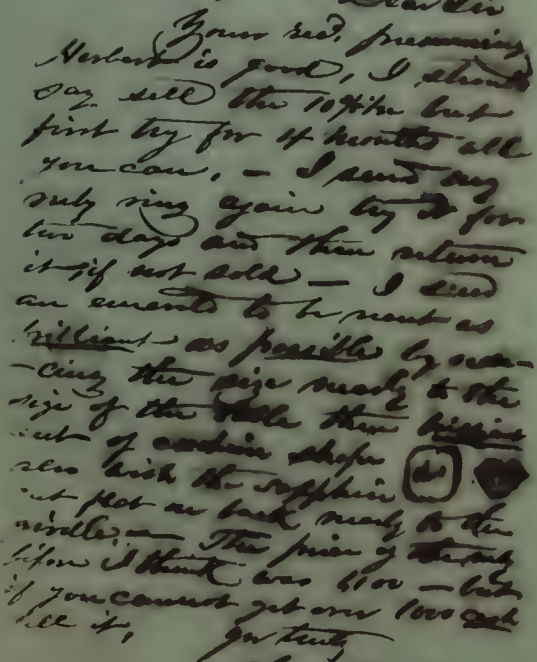 Dear Sir
Yours recd. presuming
Herbert is good, I should
say sell the 10 but
first try for 4 months all
you can, — I send my
ruby ring again try it for
two days and then return
it if not sold — I send
an emerald to be made as
brilliant as possible by redu-
-cing the size nearly to the
size of the then
cut of certain shape
also with the sapphire
cut flat on back nearly to the
girdle — The price of the ruby
before I think was 1100 — but
if you cannot get over 1000 cash
sell it,
Yrs truly